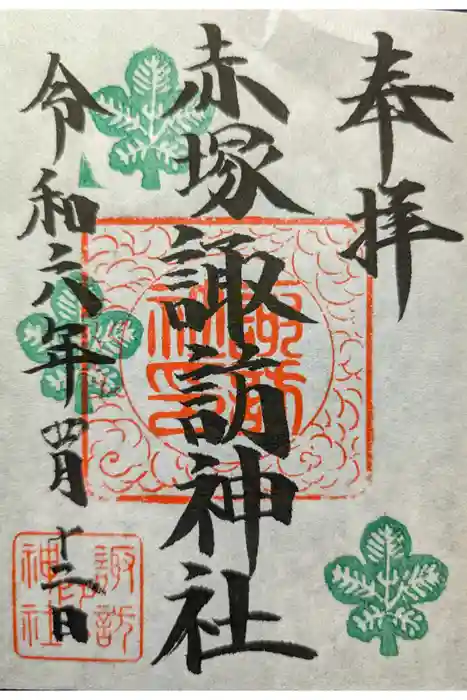 奉拝
赤塚諏訪神社
令和六年四月十二日
諏訪
神社